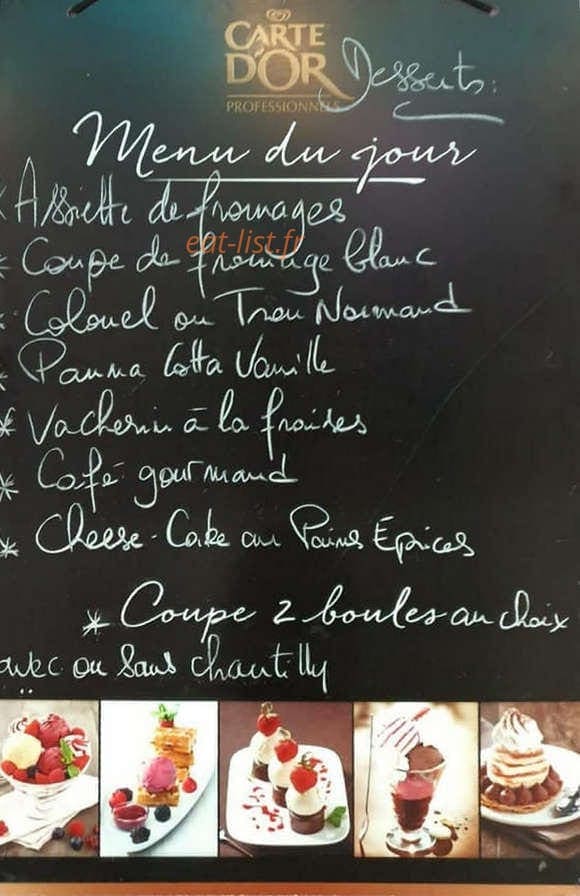 CARTE
D'OR
PROFESSIONNELS
Desserts:
Menu du jour
* Assiette de fromages
* Coupe de fromage blanc
eat-list.fr
* Colonel ou Trou Normand
* Panna Cotta Vanille
* Vacherin à la fraises
* Café gourmand
* Cheese-Cake au Pains Épices
* Coupe 2 boules au choix
avec ou sans chantilly